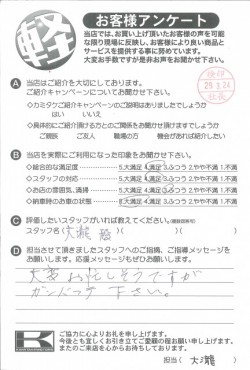 軽
お客様アンケート
当店では、よりお買上げ頂いたお客様の声を可能
な限り現場に反映し、お客様により良い商品と
サービスを提供する事に努めています。
大変お手数ですが是非お声をお聞かせ下さい。
A 当店はご紹介を大切にしております。
ご紹介キャンペーンについてお聞かせ下さい。
◇カミタケご紹介キャンペーンのご説明はありましたでしょうか
はい いいえ
◇具体的にご紹介頂ける方とのご関係をお聞かせ頂けますでしょうか
ご親戚 ご友人 職場の方 機会があれば紹介したい
B 当店を実際にご利用になった印象をお聞かせ下さい。
◇総合的な満足度 5.大満足 4.満足 3.ふつう 2.やや不満 1.不満
◇スタッフの対応 5.大満足 4.満足 3.ふつう 2.やや不満 1.不満
◇お店の雰囲気、清掃 5.大満足 4.満足 3.ふつう 2.やや不満 1.不満
◇納車時のお車の状態 5.大満足 4.満足 3.ふつう 2.やや不満 1.不満
C 評価したいスタッフがいれば教えてください。(複数回答可)
スタッフ名
D 担当させて頂きましたスタッフへのご指摘、ご指導メッセージを
お願いします。応援メッセージもぜひお願いします。
大変お忙しそうですが
ガンバって下さい。
K
ご協力に心よりお礼を申し上げます。
今後とも宜しくお引き立てご愛顧の程お願い申し上げます。
またのご来店を心からお待ちしております。
担当( 大瀧 )